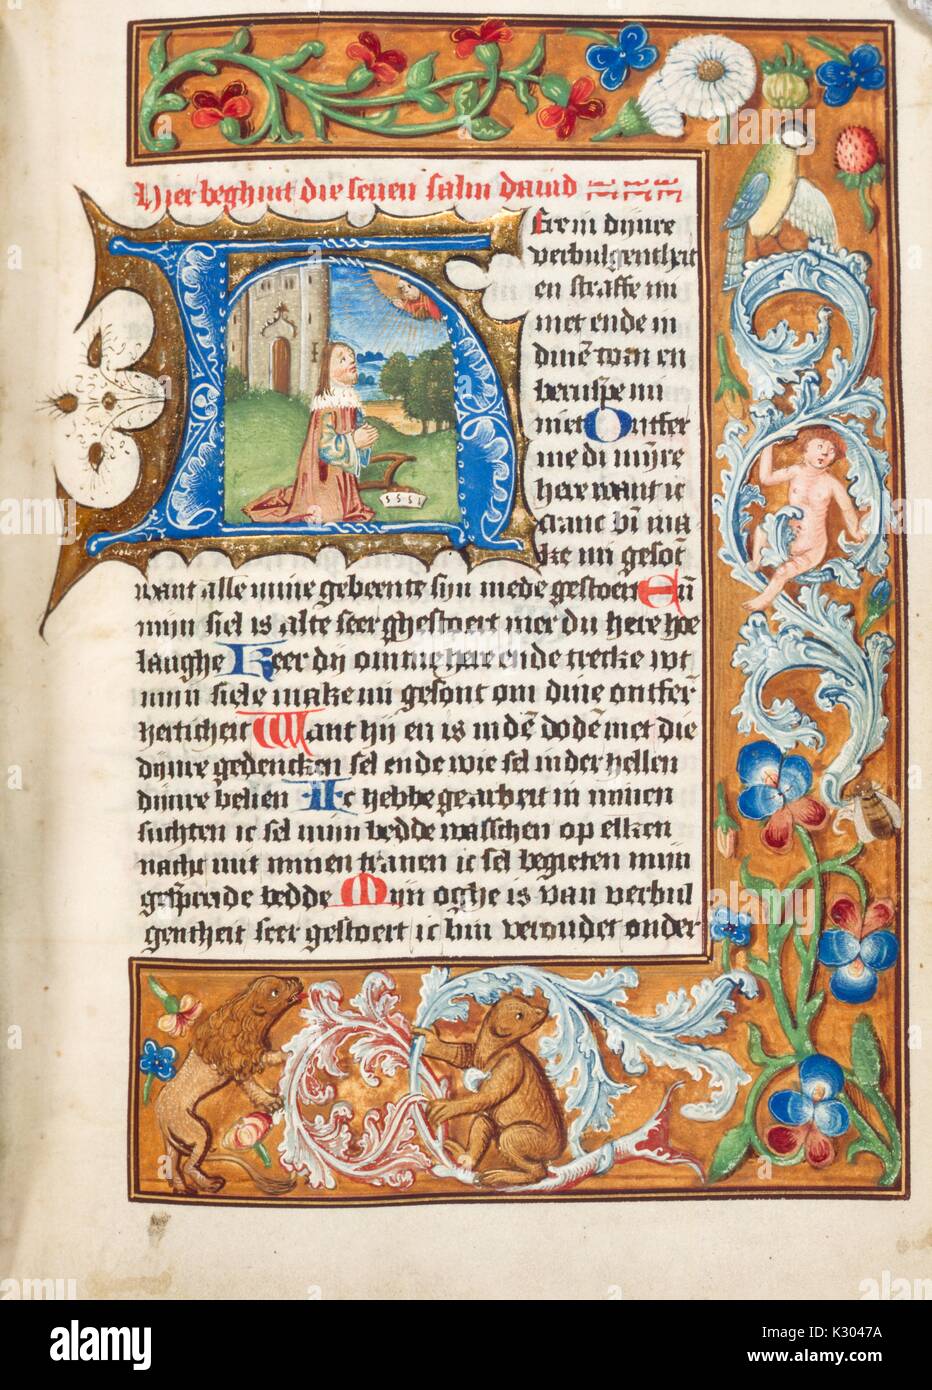 Hier beghint die seuen salm dauid
Here in dijnre
verbulgentheit
en straffe mi
niet ende in
dinē toorn en
berispe mi
niet Ontfer
me di mijre
here want ic
cranc bī ma
ke mi gesōt
want alle mine gebeente sijn mede gestoert Eñ
mijn siel is alte seer ghestoert mer du here hoe
langhe Keer dij omme here ende trecke wt
mijn siele make mi gesont om dine ontfer
herticheit Want hij en is in dē dodē niet die
dijnre gedencken sel ende wie sel in der hellen
dijnre belien Ic hebbe gearbeit in minen
suchten ic sel mijn bedde wasschen op elken
nacht mit minen tranen ic sel begieten mijn
gespreide bedde Mijn oghe is van verbul
gentheit seer gestoert ic bin veroudet onder
alamy
Image ID: K3047A
www.alamy.com